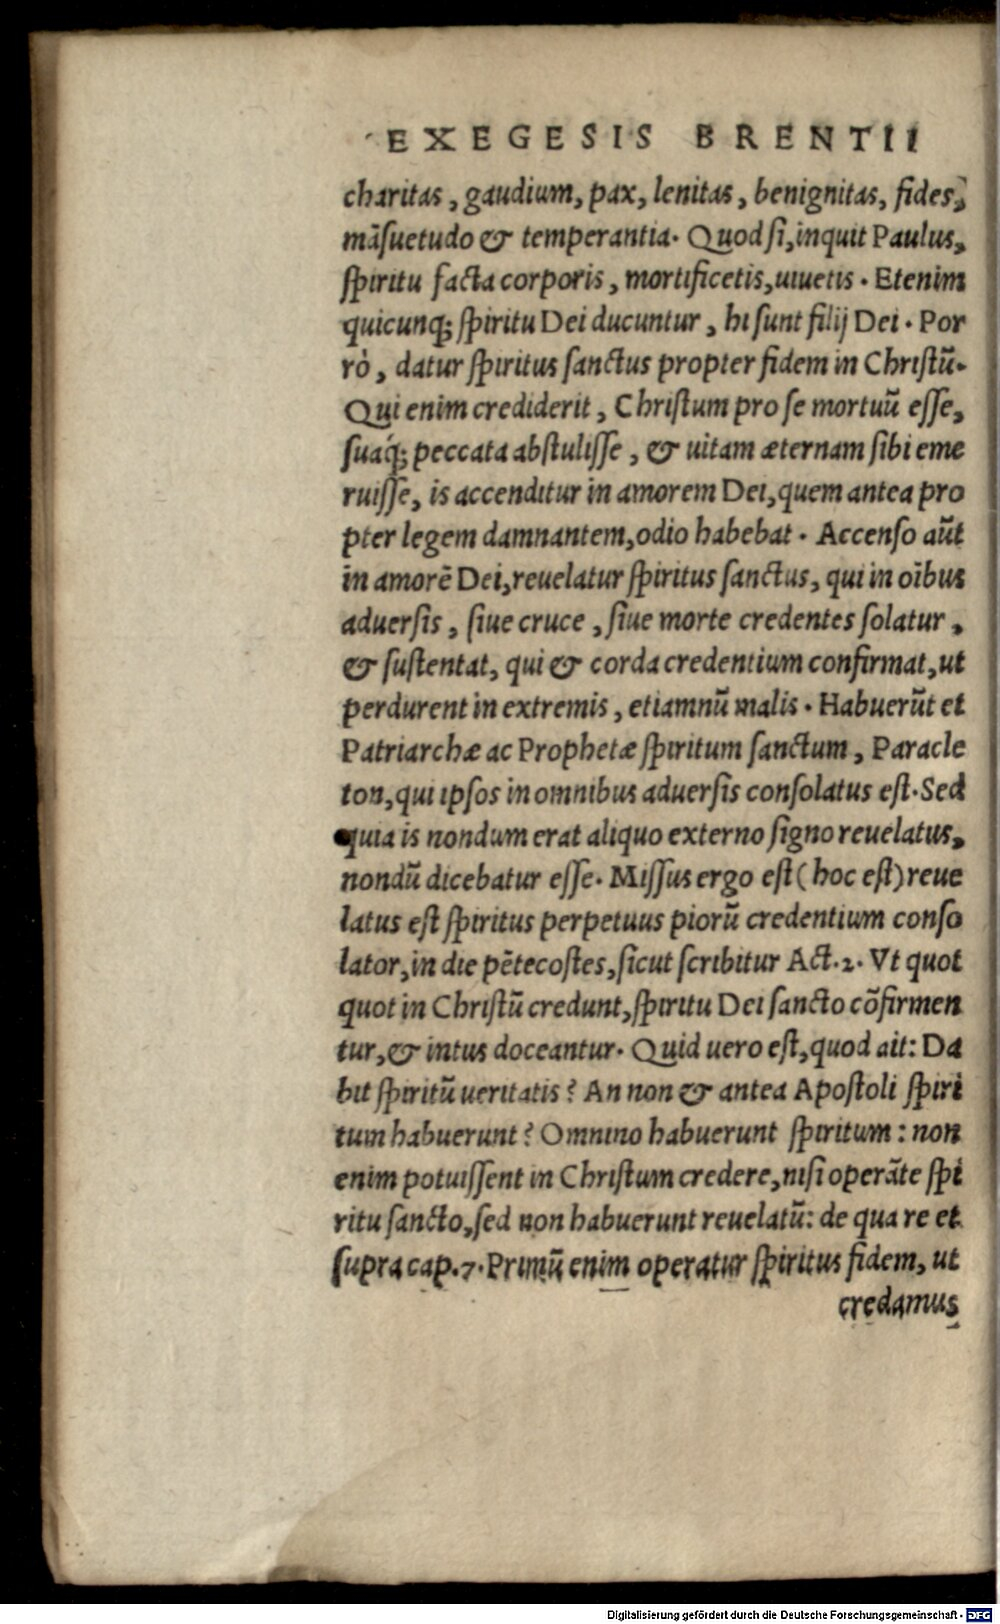 EXEGESIS BRENTII
charitas, gaudium, pax, lenitas, benignitas, fides,
māſuetudo & temperantia. Quod ſi, inquit Paulus,
ſpiritu facta corporis, mortificetis, uiuetis. Etenim
quicunq; ſpiritu Dei ducuntur, hi ſunt filij Dei. Por
rò, datur ſpiritus ſanctus propter fidem in Chriſtū.
Qui enim crediderit, Chriſtum pro ſe mortuū eſſe,
ſuaq́; peccata abſtuliſſe, & uitam æternam ſibi eme
ruiſſe, is accenditur in amorem Dei, quem antea pro
pter legem damnantem, odio habebat. Accenſo aūt
in amorē Dei, reuelatur ſpiritus ſanctus, qui in oībus
aduerſis, ſiue cruce, ſiue morte credentes ſolatur,
& ſuſtentat, qui & corda credentium confirmat, ut
perdurent in extremis, etiamnū malis. Habuerūt et
Patriarchæ ac Prophetæ ſpiritum ſanctum, Paracle
ton, qui ipſos in omnibus aduerſis conſolatus eſt. Sed
quia is nondum erat aliquo externo ſigno reuelatus,
nondū dicebatur eſſe. Miſſus ergo eſt (hoc eſt) reue
latus eſt ſpiritus perpetuus piorū credentium conſo
lator, in die pētecoſtes, ſicut ſcribitur Act. 2. Vt quot
quot in Chriſtū credunt, ſpiritu Dei ſancto cōfirmen
tur, & intus doceantur. Quid uero eſt, quod ait: Da
bit ſpiritū ueritatis? An non & antea Apoſtoli ſpiri
tum habuerunt? Omnino habuerunt ſpiritum: non
enim potuiſſent in Chriſtum credere, niſi operāte ſpi
ritu ſancto, ſed non habuerunt reuelatū: de qua re et
ſupra cap. 7. Primū enim operatur ſpiritus fidem, ut
credamus
Digitalisierung gefördert durch die Deutsche Forschungsgemeinschaft - DFG